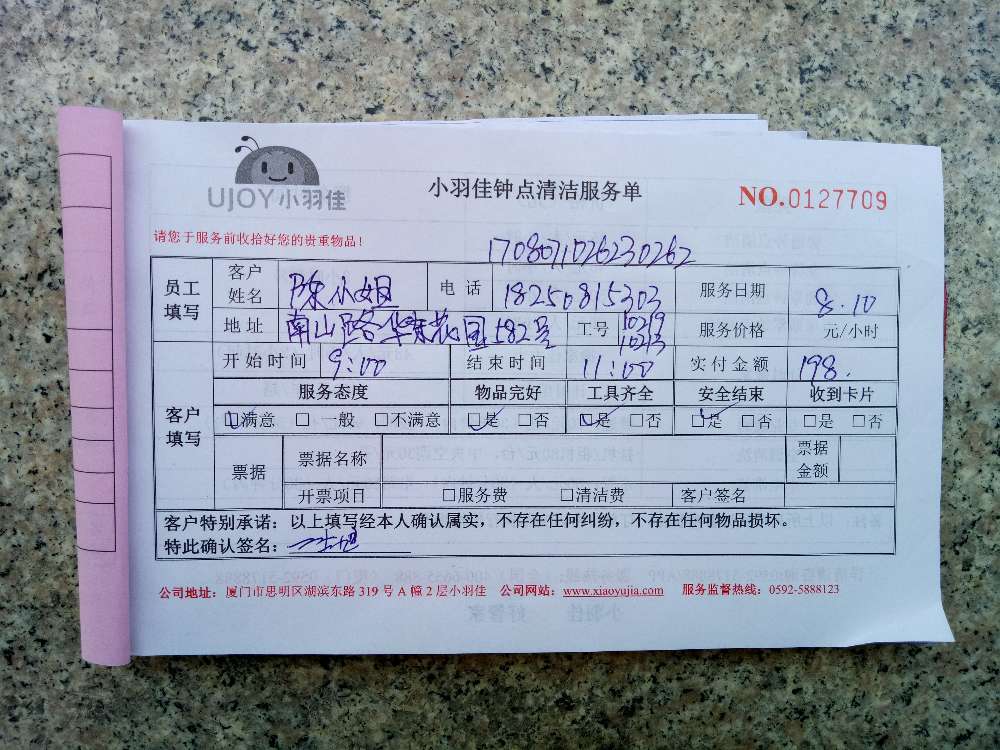 UJOY小羽佳
小羽佳钟点清洁服务单
NO.0127709
请您于服务前收拾好您的贵重物品！
1708071026230262
员工填写 客户姓名 陈小姐 电话 18250815303 服务日期 8.10
地址 南山路华东花园582号 工号 10219 10213 服务价格 元/小时
客户填写 开始时间 9:00 结束时间 11:00 实付金额 198.
服务态度 物品完好 工具齐全 安全结束 收到卡片
☑满意 □一般 □不满意 ☑是 □否 ☑是 □否 ☑是 □否 □是 □否
票据 票据名称 票据金额
开票项目 □服务费 □清洁费 客户签名
客户特别承诺：以上填写经本人确认属实，不存在任何纠纷，不存在任何物品损坏。
特此确认签名：
公司地址：厦门市思明区湖滨东路 319 号 A 幢 2 层小羽佳 公司网站：www.xiaoyujia.com 服务监督热线：0592-5888123